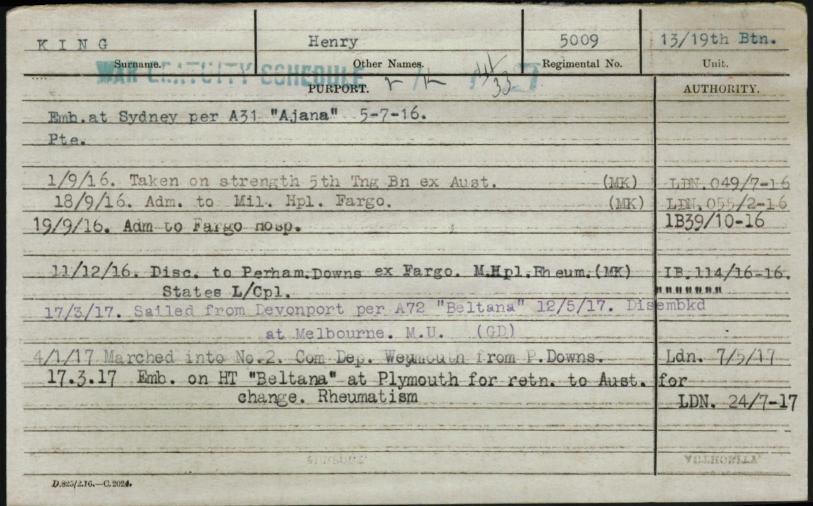 KING Henry 5009 13/19th Btn.
Surname. Other Names. Regimental No. Unit.
WAR GRATUITY SCHEDULE
PURPORT. AUTHORITY.
Emb.at Sydney per A31 "Ajana" 5-7-16.
Pte.
1/9/16. Taken on strength 5th Tng Bn ex Aust. (MK) LDN.049/7-16
18/9/16. Adm. to Mil. Hpl. Fargo. (MK) LDN.055/2-16
19/9/16. Adm to Fargo hosp. 1B39/10-16
11/12/16. Disc. to Perham.Downs ex Fargo. M.Hpl.Rheum.(MK) IB.114/16-16.
States L/Cpl. """""""
17/3/17. Sailed from Devonport per A72 "Beltana" 12/5/17. Disembkd
at Melbourne. M.U. (GD)
4/1/17 Marched into No.2. Com Dep. Weymouth from P.Downs. Ldn. 7/5/17
17.3.17 Emb. on HT "Beltana" at Plymouth for retn. to Aust. for
change. Rheumatism LDN. 24/7-17
D.825/2.16.—C.2024.